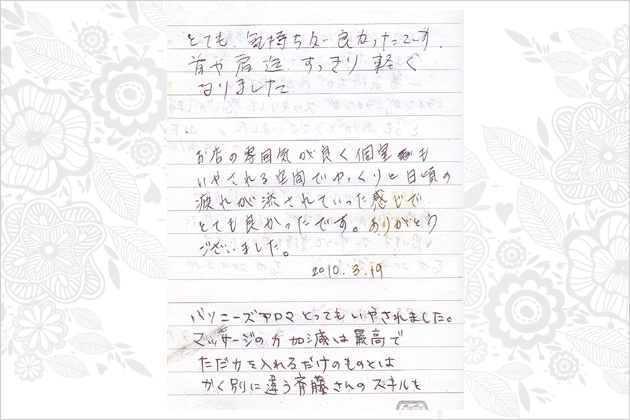 とても、気持ちが良かったです。
首や肩迄すっきり軽く
なりました
お店の雰囲気が良く個室も
いやされる空間でゆっくりと日頃の
疲れが流されていった感じで
とても良かったです。ありがとう
ございました。
2010.3.19
バリニーズアロマとってもいやされました。
マッサージの力加減は最高で
ただ力を入れるだけのものとは
かく別に違う斉藤さんのスキルを